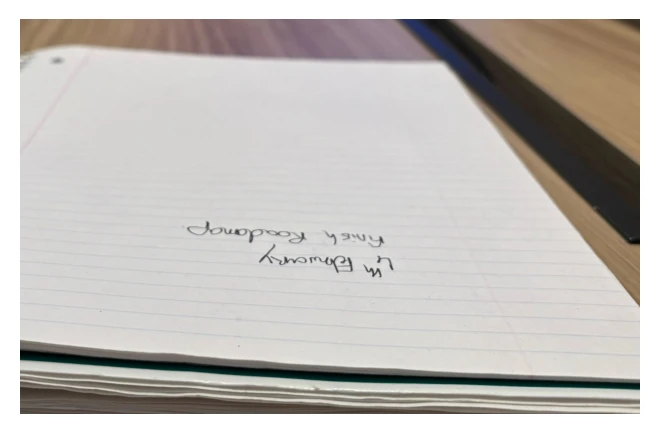 4th February
Finish Roadmap